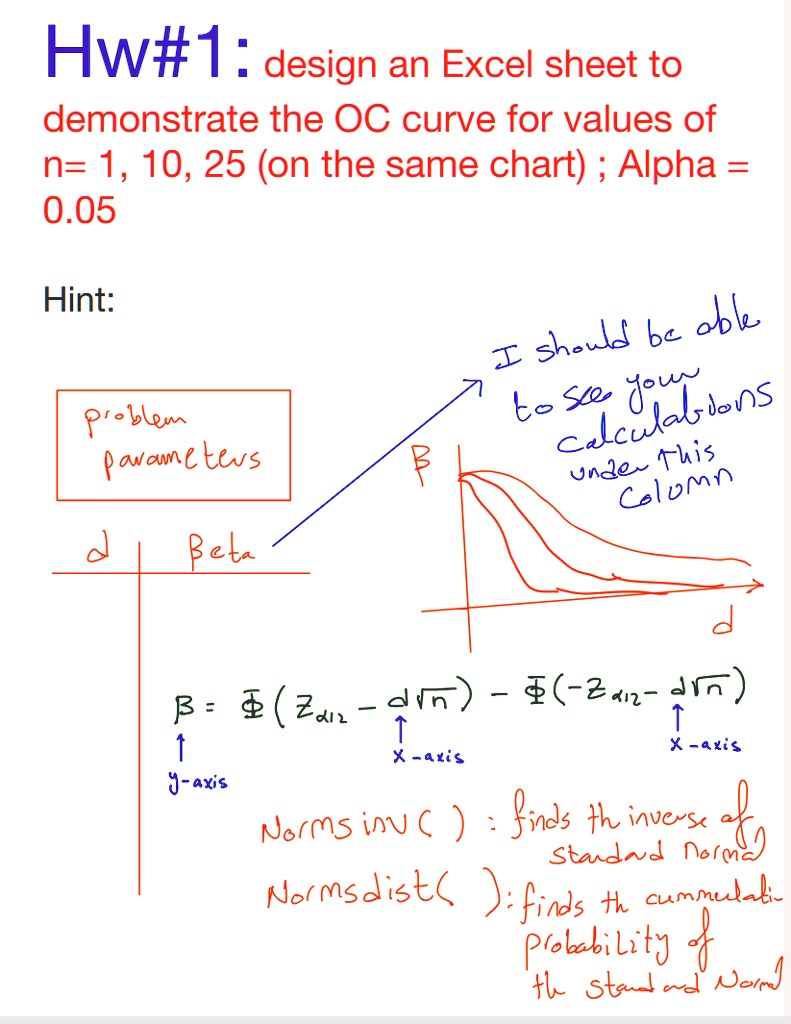 Hw#1: design an Excel sheet to
demonstrate the OC curve for values of
n= 1, 10, 25 (on the same chart) ; Alpha =
0.05
Hint:
I should be able
to see your
calculations
under this
Column
problem
parameters
β
d
Beta
d
β = Φ ( Zα/2 - d√n ) - Φ (-Zα/2 - d√n )
y-axis
x-axis
x-axis
Normsinv( ) : finds th inverse of
standard normal
Normsdist( ): finds th cummulati
probability of
th standard Normal